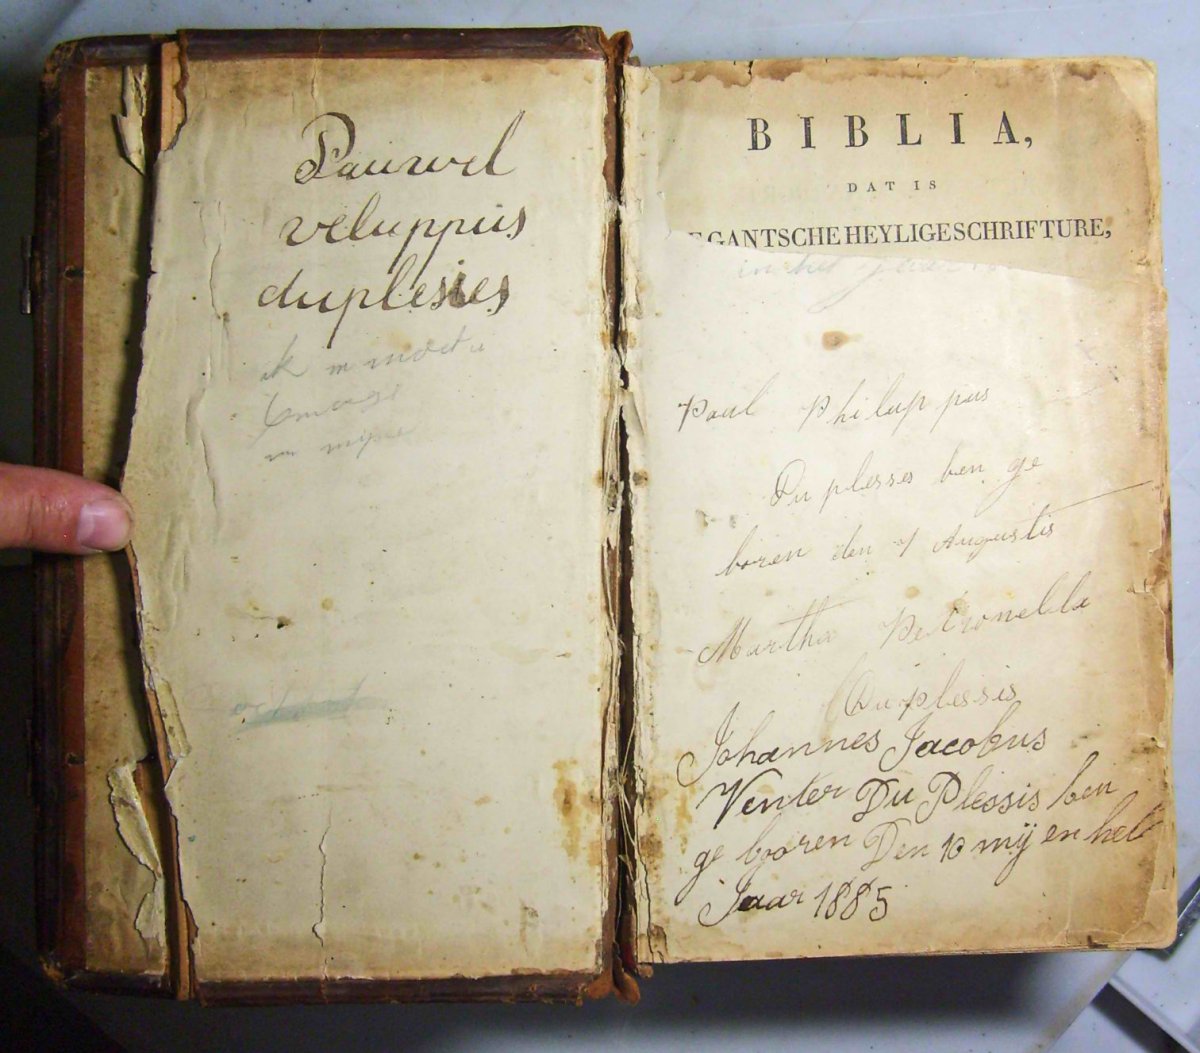 Pauwel
veluppus
duplesies
ik m moet u
BIBLIA,
DAT IS
E GANTSCHE HEYLIGE SCHRIFTURE,
in het Jaar
Paul Philuppus
Du plesses ben ge
boren den 7 Augustis
Martha Petronella
Du plessis
Johannes Jacobus
Venter Du Plessis ben
ge booren Den 10 mij en het
Jaar 1885